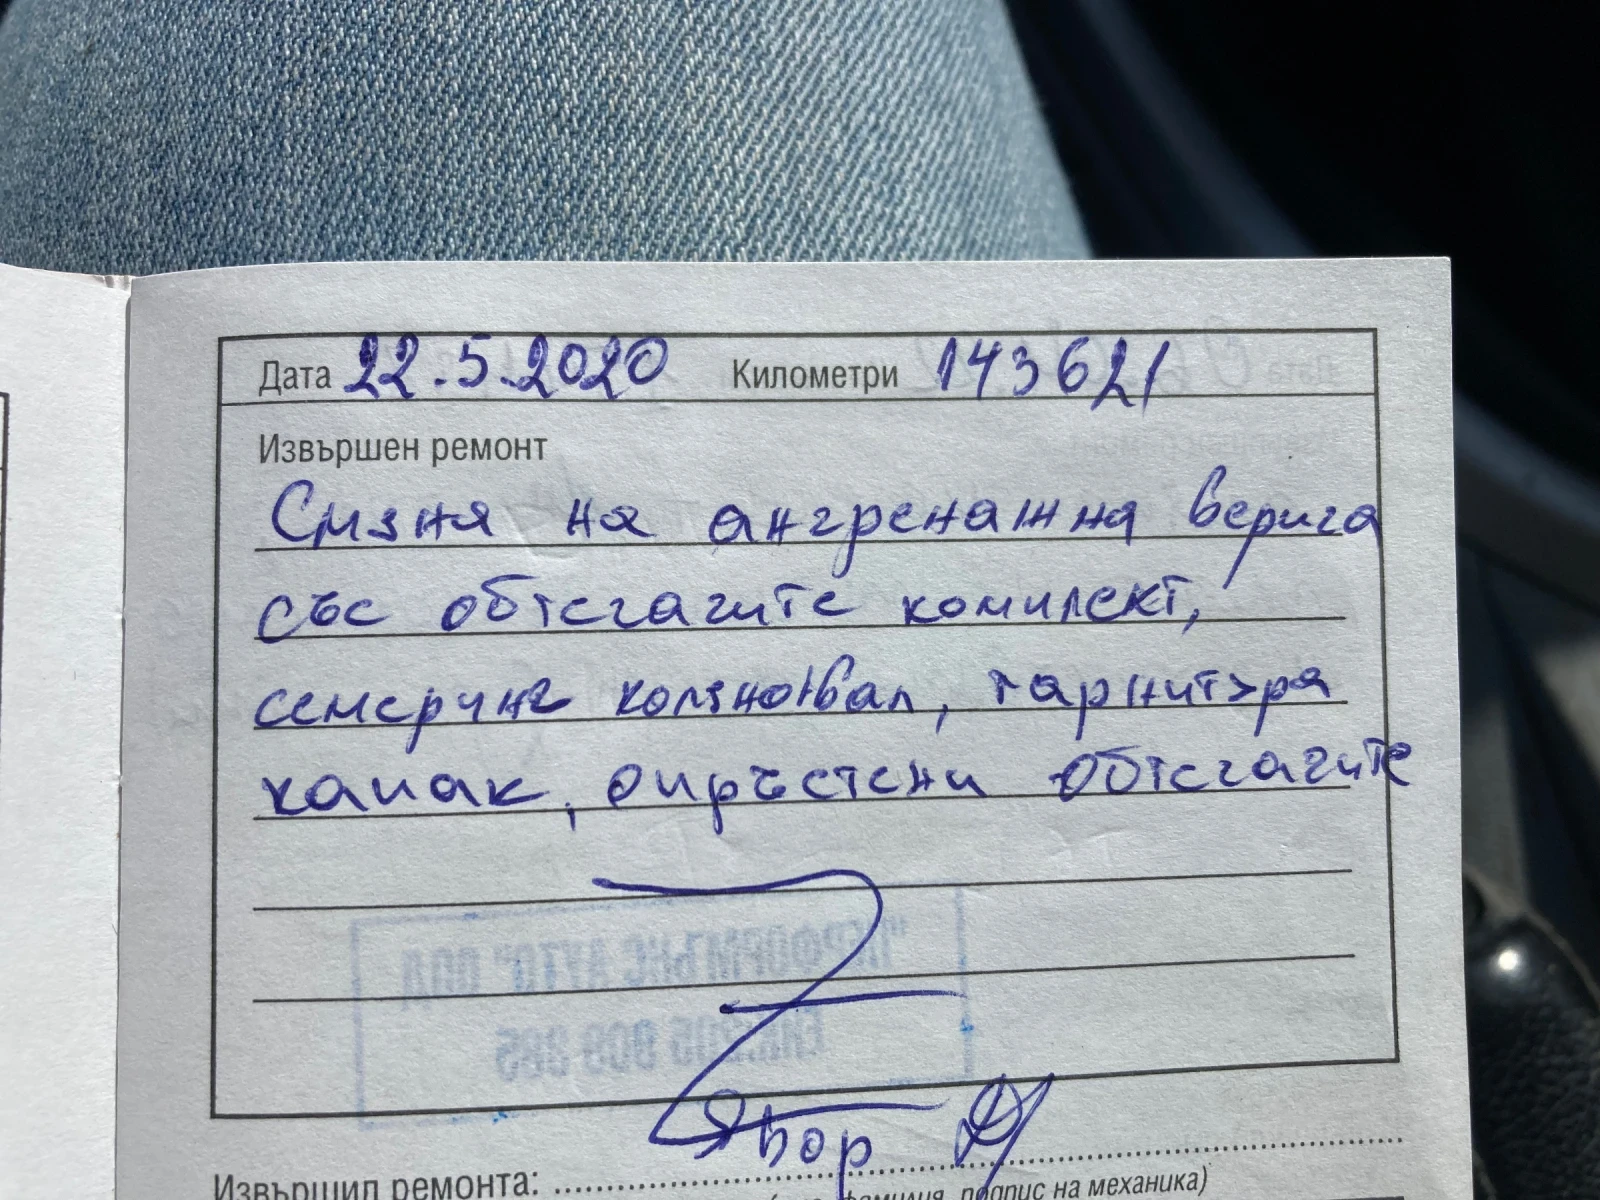 Дата 22.5.2020 Километри 143621
Извършен ремонт
Смяна на ангренажна верига
със обтегагите комплект,
семеринг коляновал, гарнитура
капак, опръстени обтегагите
"ПЕРФОРМЪНС АУТО" ООД
Явор
Извършил ремонта:
фамилия, подпис на механика)